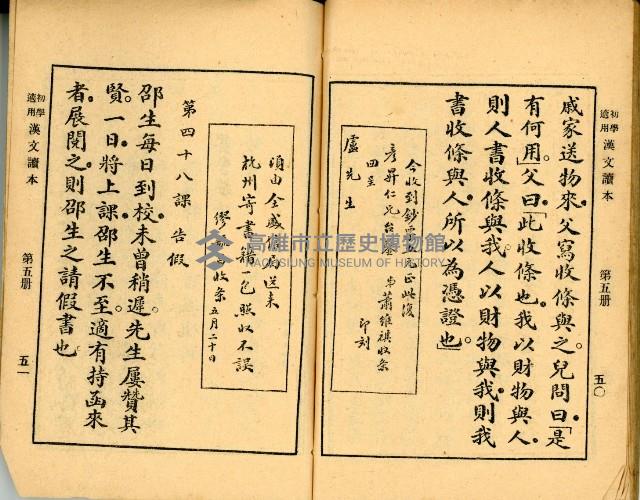 初學適用 漢文讀本 第五册 五〇
戚家送物來。父寫收條與之。兒問曰。「是
有何用」父曰。「此收條也。我以財物與人。
則人書收條與我。人以財物與我。則我
書收條與人。所以為憑證也。」
今收到鈔票
元正此復
彥昇仁兄台
弟蕭維祺收条
四呈
印刻
盧先生
須由全盛信局送來
杭州寄書籍一包照收不誤
收条 五月二十日
第四十八課 告假
邵生每日到校。未曾稍遲。先生屢贊其
賢。一日。將上課。邵生不至。適有持函來
者。展閱之。則邵生之請假書也。
初學適用 漢文讀本 第五册 五一
高雄市立歷史博物館
KAOHSIUNG MUSEUM OF HISTORY